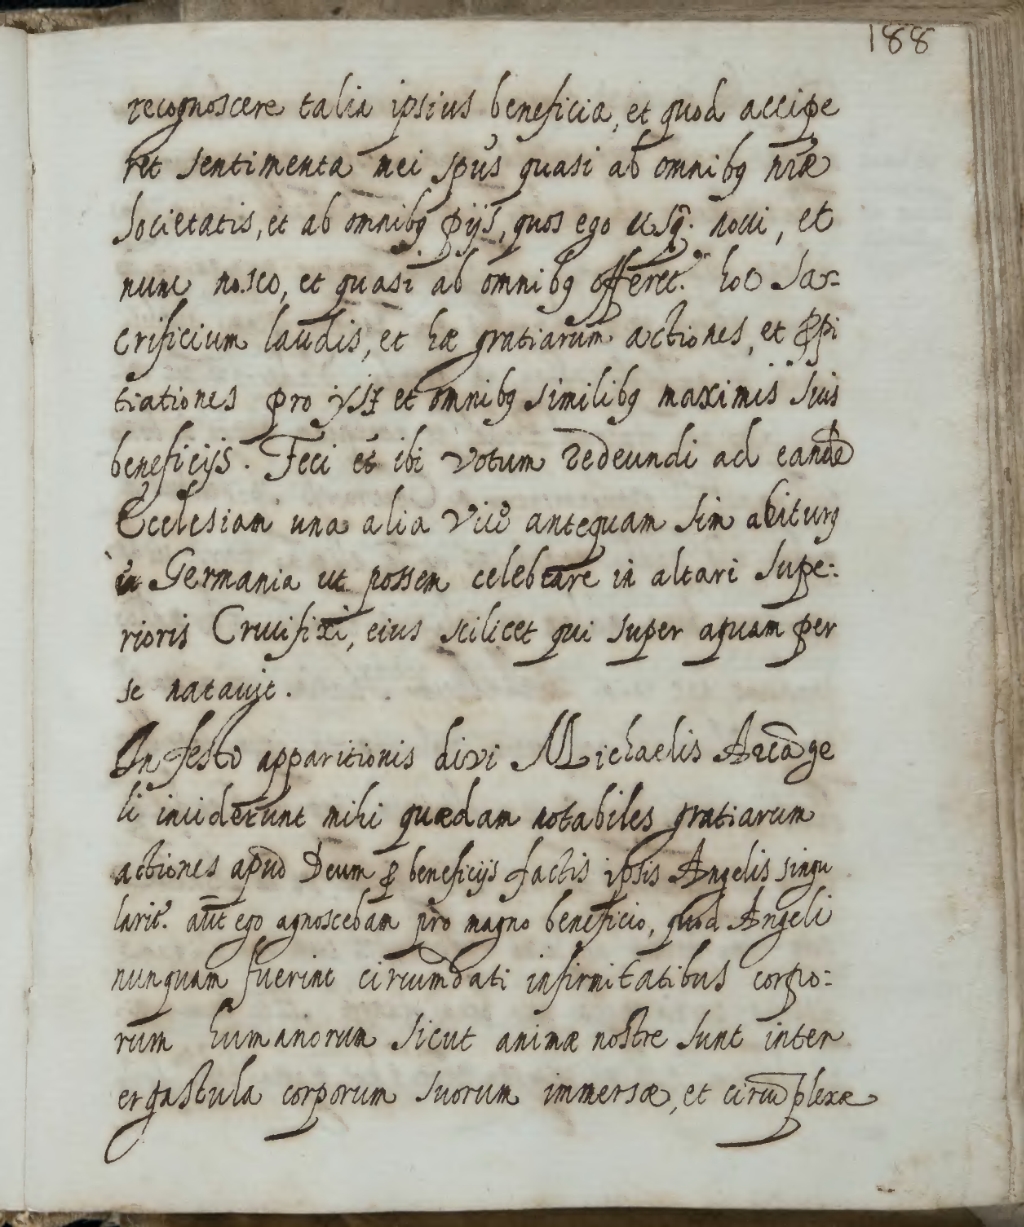 188
recognoscere talia ipsius beneficia, et quod accipe
ret sentimenta mei spũs quasi ab omnibꝰ nræ
Societatis, et ab omnibꝰ pijs, quos ego usq̃. noui, et
nunc nosco, et quasi ab omnibꝰ offeret. hoc Sa-
crificium laudis, et hæ gratiarum actiones, et ꝓpi
tiationes pro ijs et omnibꝰ similibꝰ maximis suis
beneficijs. Feci et ibi Votum redeundi ad eandẽ
Ecclesiam una alia Vice antequam sim abiturꝰ
in Germania ut possem celebrare in altari Supe:
rioris Crucifixi, eius scilicet qui super aquam per
se natauit.
In festo apparitionis divi Michaelis Arcãge
li inciderunt mihi quædam notabiles gratiarum
actiones apud Deum ꝓ beneficijs factis ipsis Angelis singu
larit. aũt ego agnoscebam pro magno beneficio, quod Angeli
nunquam fuerint circumdati infirmitatibus corpo:
rum humanorum sicut animæ nostre sunt inter
ergastula corporum suorum immersæ, et circũplexæ